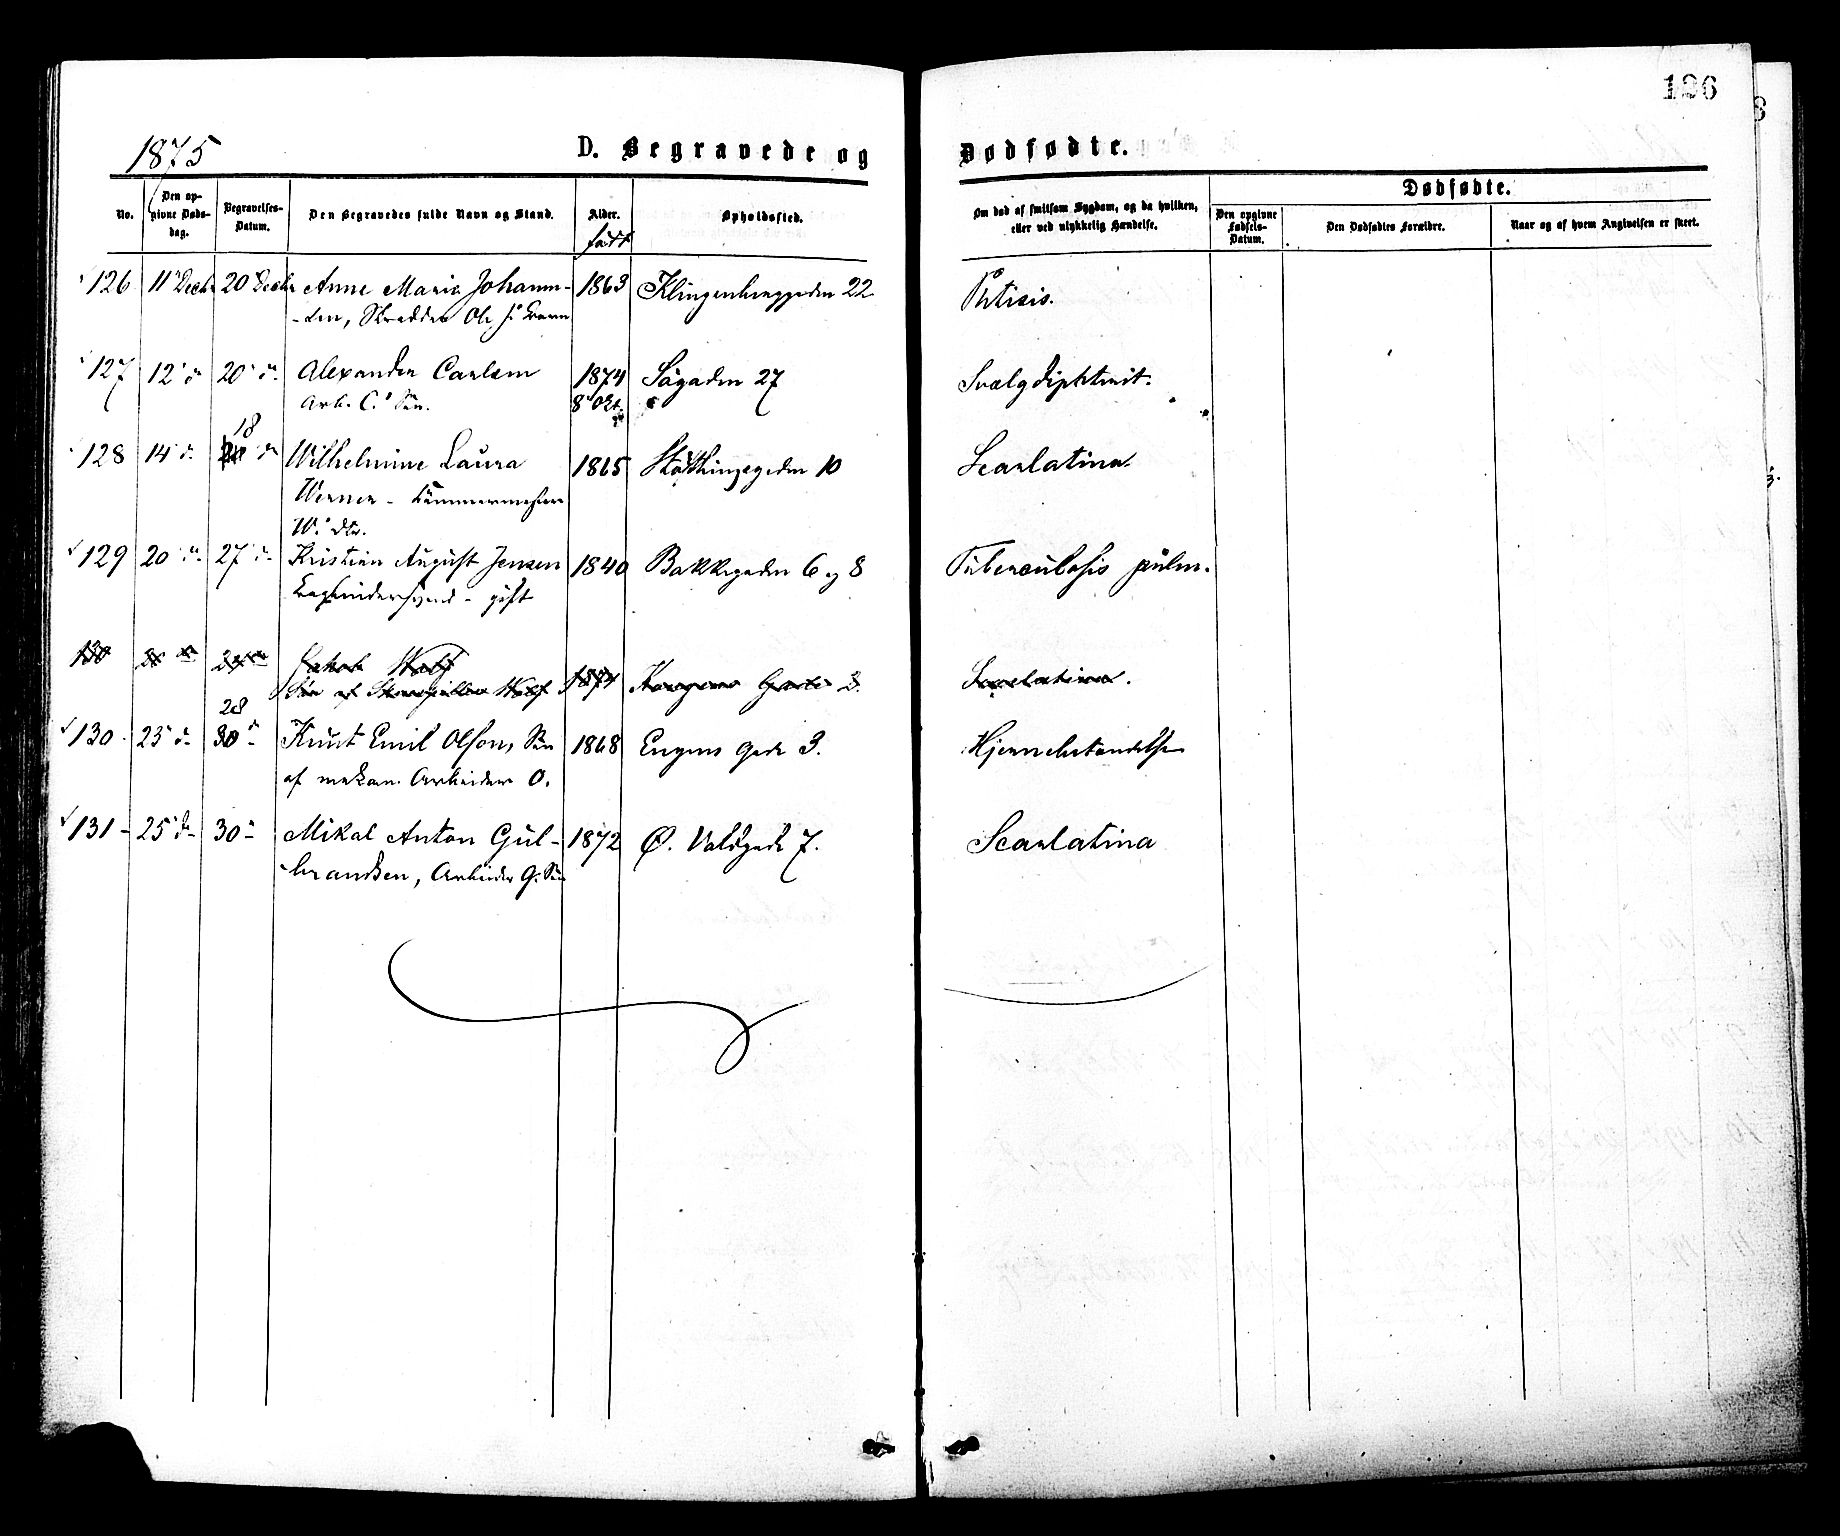 136
1875
D. Begravede og Dødfødte.
No.
Den opgivne Dødsdag.
Begravelses-Datum.
Den Begravedes fulde Navn og Stand.
Alder.
født
Opholdssted.
Om død af smitsom Sygdom, og da hvilken, eller ved ulykkelig Hændelse.
Dødfødte.
Den opgivne Fødsels-Datum.
Den Dødfødtes Forældre.
Naar og af hvem Angivelsen er skeet.
126 11 Decbr 20 Decbr Anne Marie Johann- 1863 22 Phtisis.
-sen, Skrædder Ole J.s
127 12 d. 20 d. Alexander Carlsen 1874 Søgaden 27 Svælgdiphterit.
Arb. C.s Søn. 8 Oct.
18
128 14 d. d. Wilhelmine Laura 1865 Støttingsgaden 10 Scarlatina.
Werner - Tømmermester
W.s Dtr.
129 20 d. 27 d. Kristian August Jensen 1840 Bakkegaden 6 og 8 Tuberculosis pulm.
Bogbindersvend - gift
130 1874 Scarlatina.
28
130 23 d. 30 d. Knut Emil Olsen, Søn 1868 Engens Gade 3. Hjernebetændelse
af mekan. Arbeider O.
131 - 25 d. 30 - Mikal Anton Gul- 1872 Ø. Voldgade 7. Scarlatina
-brandsen, Arbeider G. Søn